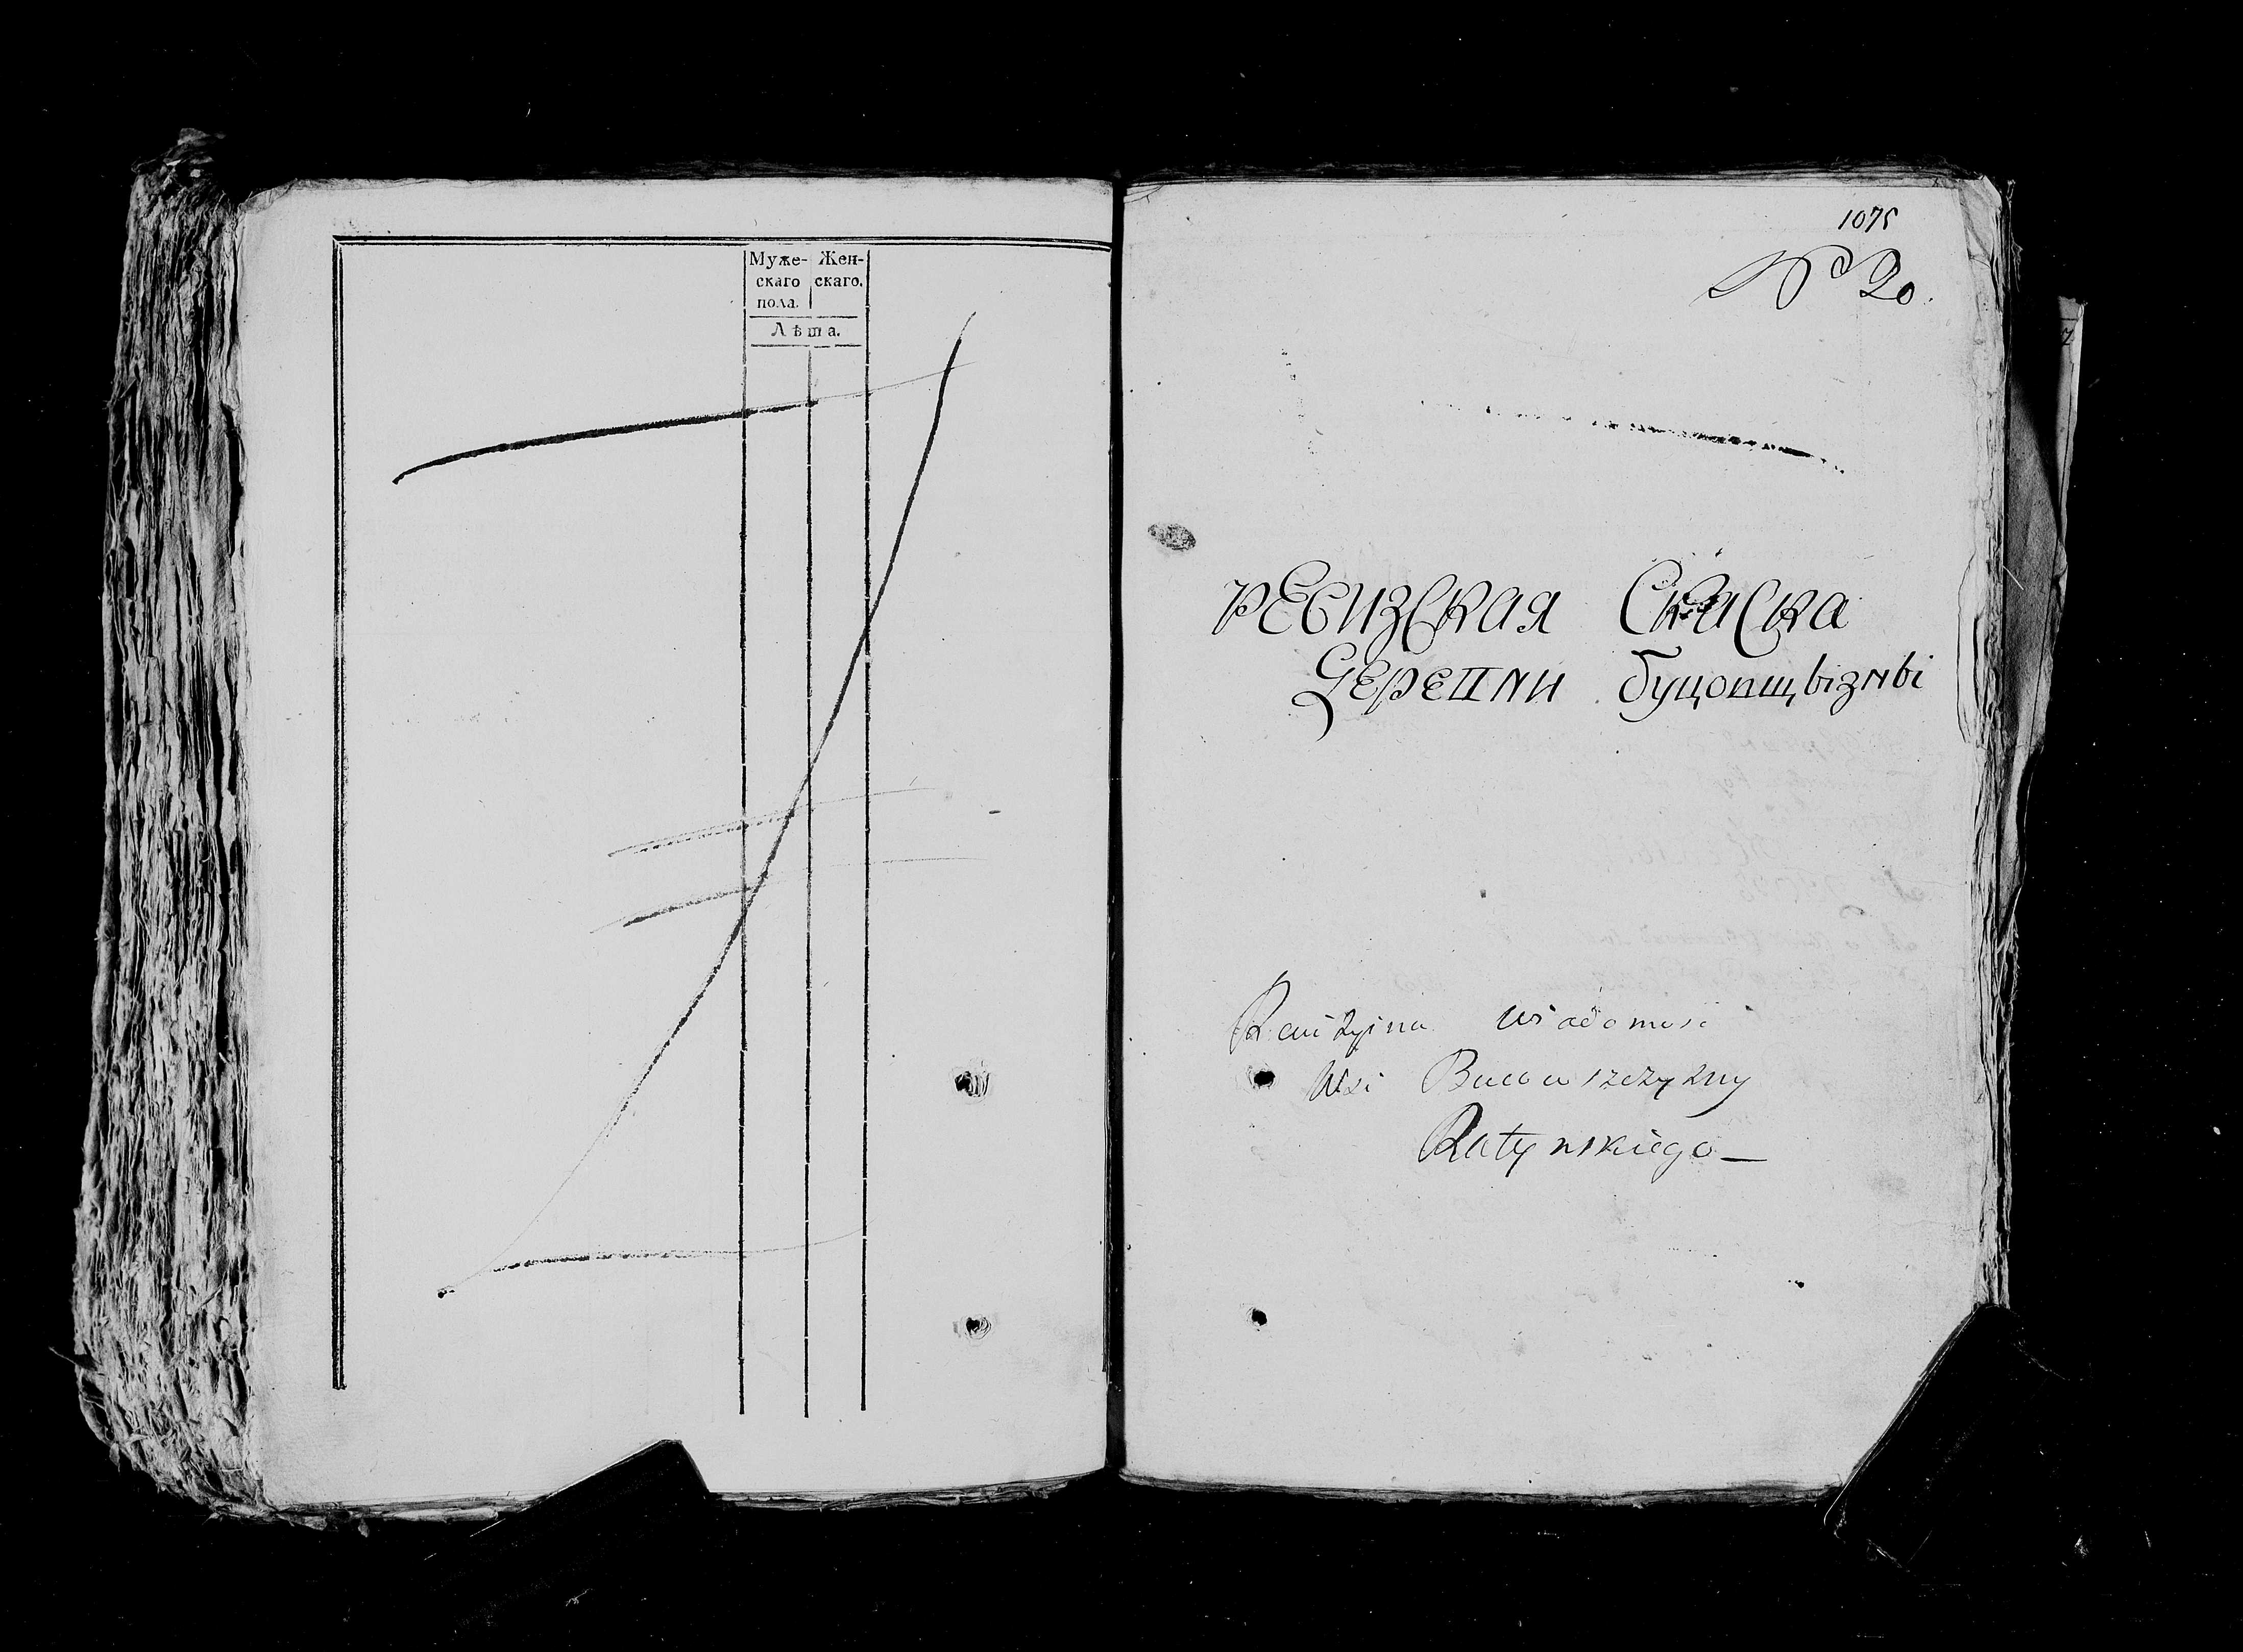 Муже- Жен-
скаго скаго.
пола.
Лѣта.
1075
№ 20.
РЕВИЗСКАЯ СКАСКА
ДЕРЕВНИ буцовщызны
Rewizyina Wiadomosc
Wsi Bucowszczyzny
Ratynskiego